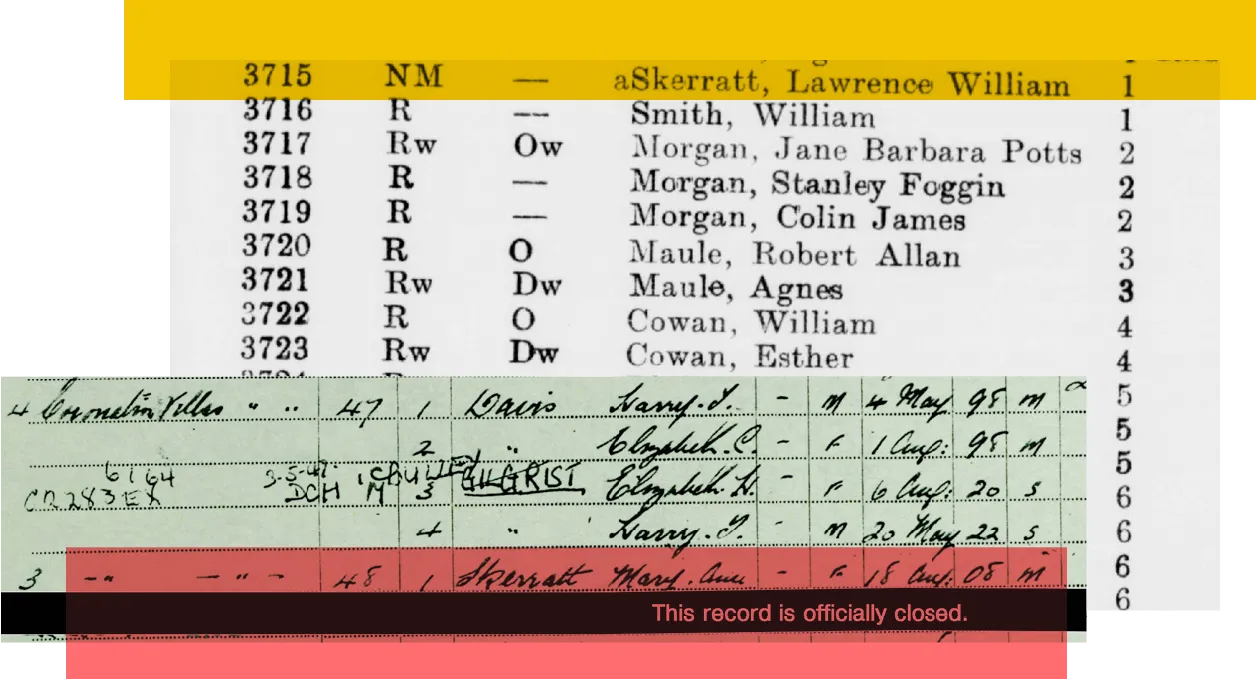 3715 NM — aSkerratt, Lawrence William 1
3716 R — Smith, William 1
3717 Rw Ow Morgan, Jane Barbara Potts 2
3718 R — Morgan, Stanley Foggin 2
3719 R — Morgan, Colin James 2
3720 R O Maule, Robert Allan 3
3721 Rw Dw Maule, Agnes 3
3722 R O Cowan, William 4
3723 Rw Dw Cowan, Esther 4
4 Coronation Villas " " 47 1 Davis Harry.T. - M 4 May 98 M 5
2 " Elizabeth.C. - F 1 Aug: 98 M 5
6164 3-5-47 5
CR283EX DCH M 3 GILGRIST Elizabeth.H. - F 6 Aug: 20 S 6
4 " Harry.T. - M 20 May 22 S 6
3 -"- -"- 48 1 Skerratt Mary.Ann - F 18 Aug: 08 M 6
This record is officially closed. 6